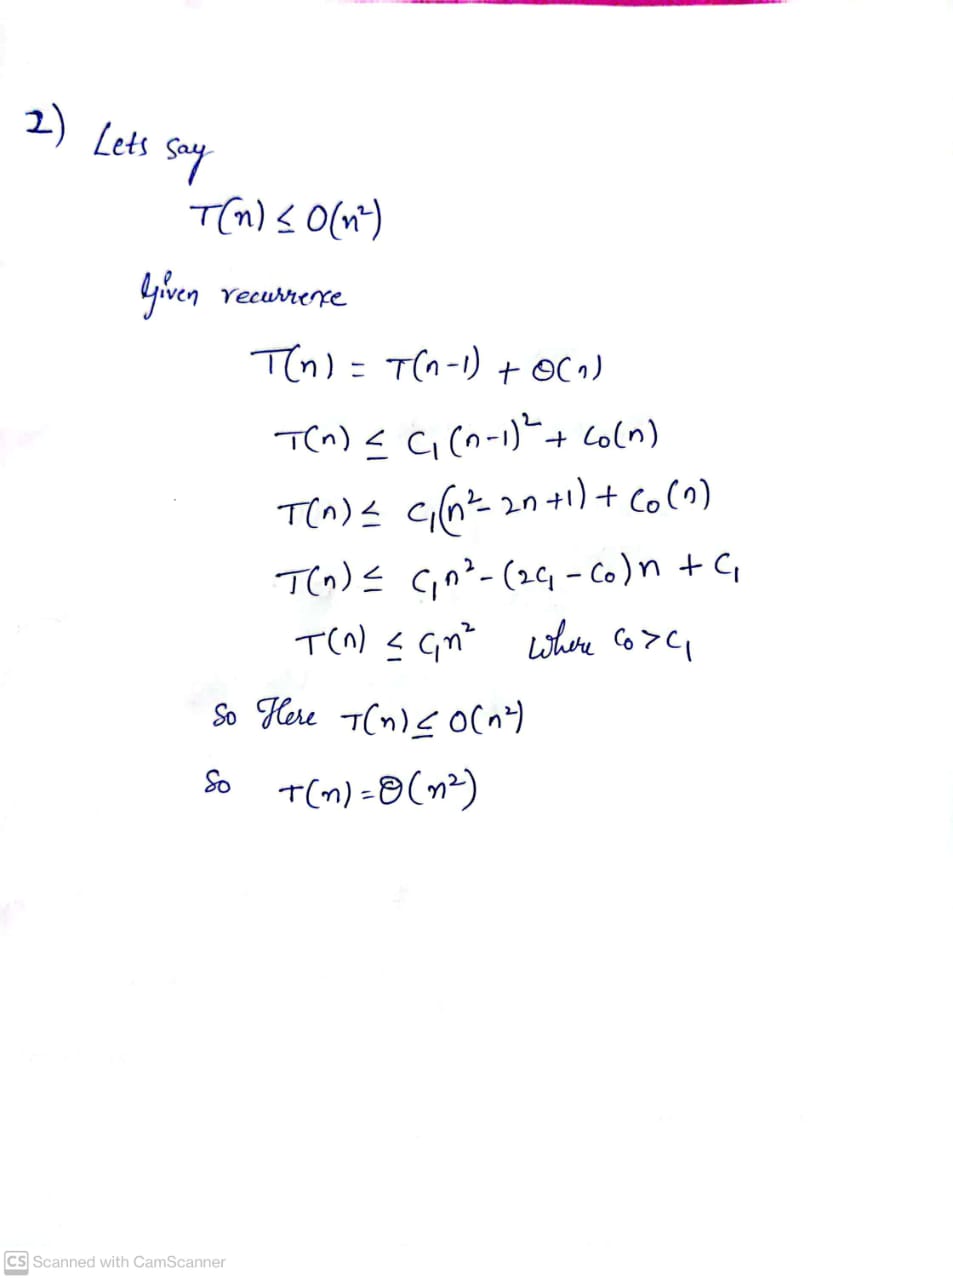 2) Lets say
T(n) ≤ O(n²)
Given recurrence
T(n) = T(n-1) + Θ(n)
T(n) ≤ C₁(n-1)² + C₀(n)
T(n) ≤ C₁(n² - 2n + 1) + C₀(n)
T(n) ≤ C₁n² - (2C₁ - C₀)n + C₁
T(n) ≤ C₁n² where C₀ > C₁
So Here T(n) ≤ O(n²)
So T(n) = Θ(n²)
CS Scanned with CamScanner